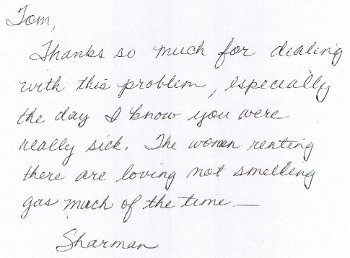 Tom,
Thanks so much for dealing
with this problem, especially
the day I know you were
really sick. The women renting
there are loving not smelling
gas much of the time.—
Sharman